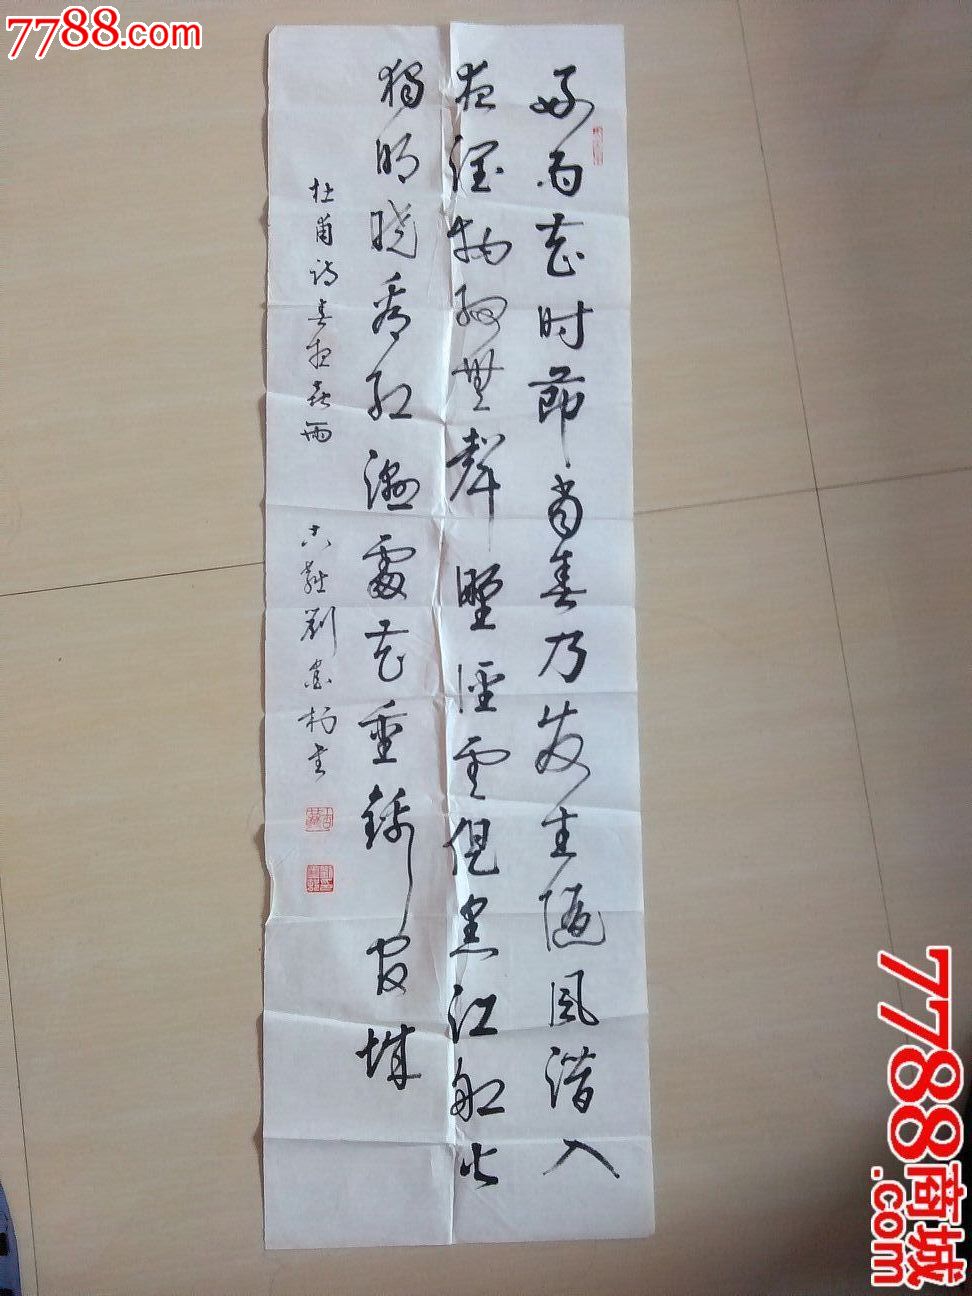 7788.com
好雨花时節当春乃发生随風潜入
夜润物细無聲野径雲俱黑江船火
独明晓看红濕處花重錦官城
杜甫诗春夜喜雨
劉 书
7788商城
.com